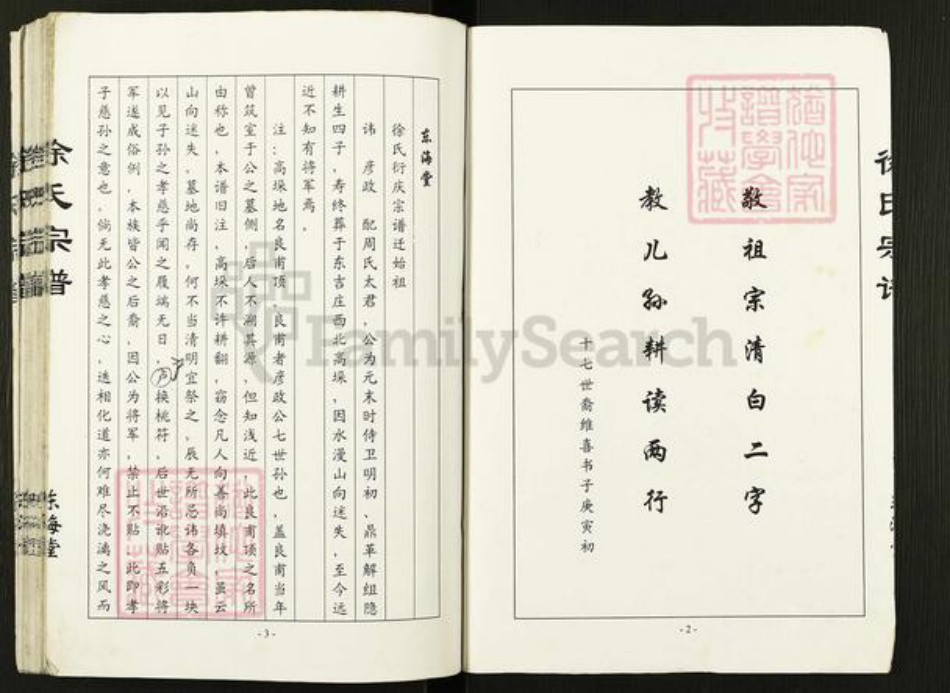 敬祖宗清白二字
教儿孙耕读两行
十七世裔维喜书于庚寅初
-2-
东海堂
徐氏衍庆宗谱迁始祖
讳 彦政 配周氏太君，公为元末时侍卫明初、鼎革解组隐
耕生四子，寿终葬于东吉庄西北高垛，因水漫山向迷失，至今远
近不知有将军焉。
注：高垛地名良甫顶，良甫者彦政公七世孙也，盖良甫当年
曾筑室于公之墓侧，后人不溯其源，但知浅近，此良甫顶之名所
由称也，本谱旧注，高垛不许耕翻，窃念凡人向善尚填坟，虽云
山向迷失，墓地尚存，何不当清明宜祭之，辰无所忌讳各负一块
以见子孙之孝慈乎闻之履端元日，户换桃符，后世沿讹贴五彩将
军遂成俗例，本族皆公之后裔，因公为将军，禁止不贴，此即孝
子慈孙之意也，倘无此孝慈之心，迭相化道亦何难尽浇漓之风而
-3-
徐氏宗谱
东海堂
FamilySearch